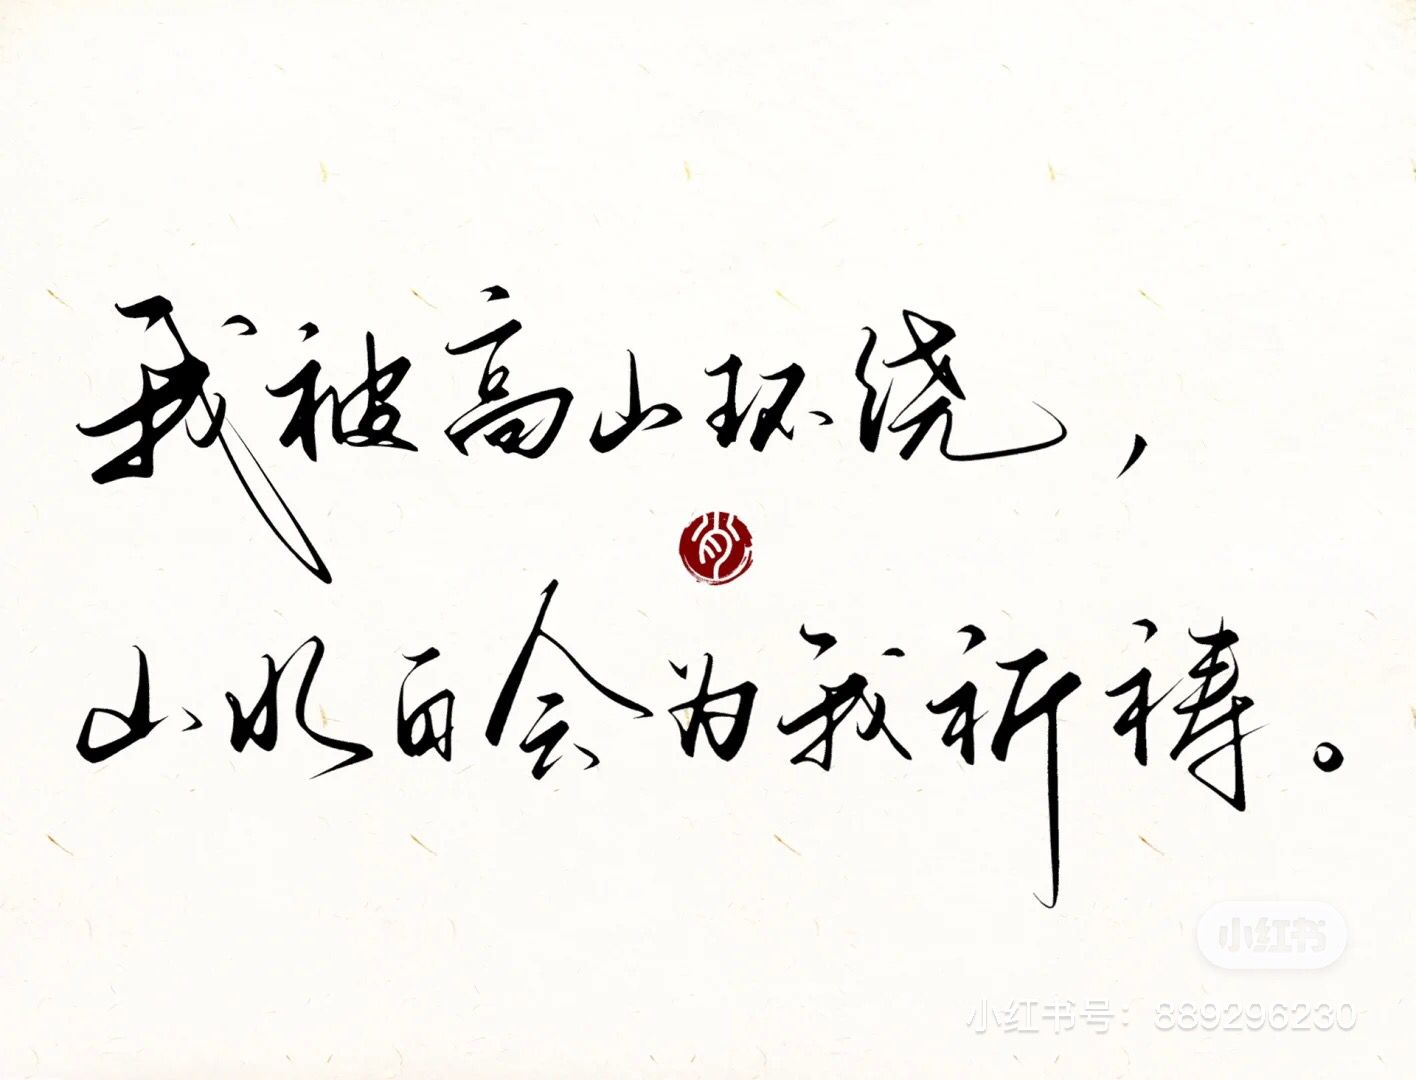 我被高山环绕，
山水自会为我祈祷。
小红书
小红书号：889296230